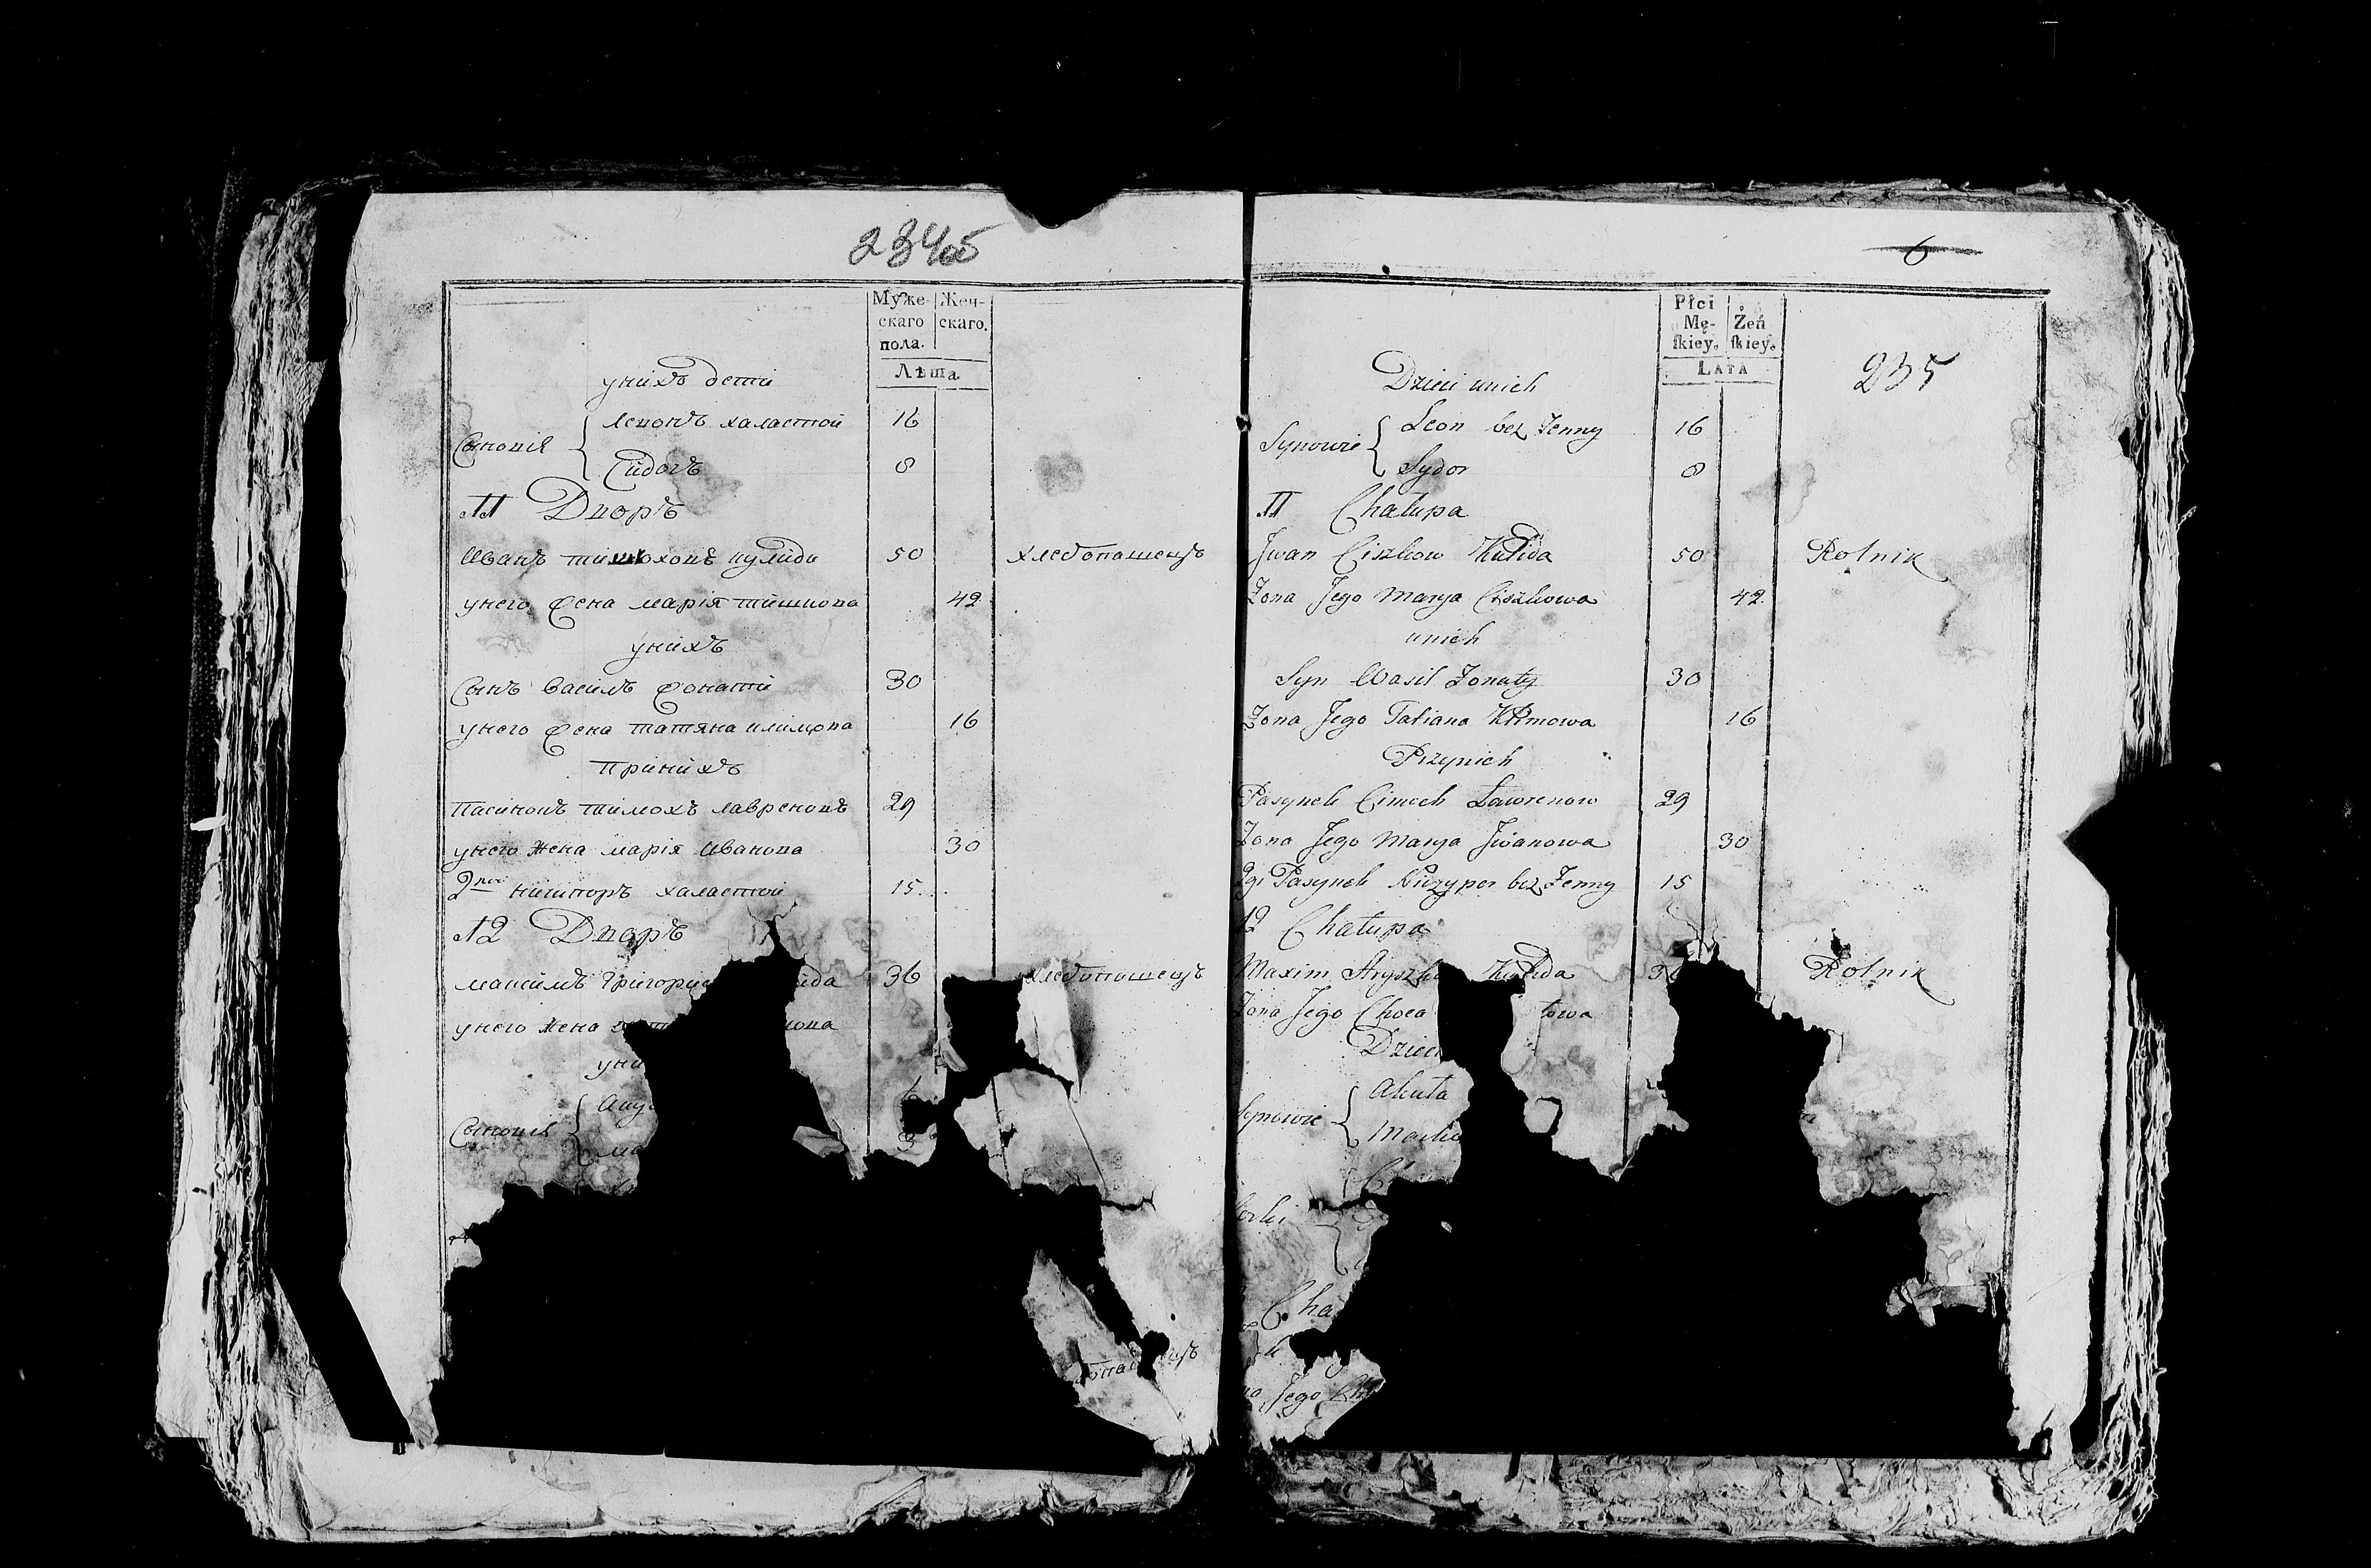 234об
Муже- Жен-
скаго скаго.
пола.
Лѣта
унихъ дети
Сыновя { Левонъ халастой 16
Сидоръ 8
11 Дворъ
Иванъ тишковъ кулида 50 хлебопашецъ
унего жена марія тишкова 42
унихъ
Сынъ василъ жонатй 30
унего жена татяна климова 16
Принихъ
Пасинокъ тимохъ лавреновъ 29
унего жена марія иванова 30
2гой ничипоръ халастой 15
12 Дворъ
максимъ григорие ида 36 хлебопашецъ
унего жена нова
уни
Сыновя { аку 6
ма 3
6
235
Płci
Mę- Żeń
ſkiey. ſkiey.
LATA
Dzieci unich
Synowie { Leon bez Zenny 16
Sydor 8
11 Chałupa
Jwan Ciszkow Kulida 50 Rolnik
Zona Jego Marya Ciszkowa 42
unich
Syn Wasil Zonaty 30
Zona Jego Tatiana Klimowa 16
Przynich
Pasynek Cimoch Lawrenow 29
Zona Jego Marya Jwanowa 30
2gi Pasynek Niczyper bez Zenny 15
12 Chałupa
Maxim Hryszko Kulida 36 Rolnik
Zona Jego towa
Dzieci
Synowie { Akuła
Marko
Corki
Cha
Jego